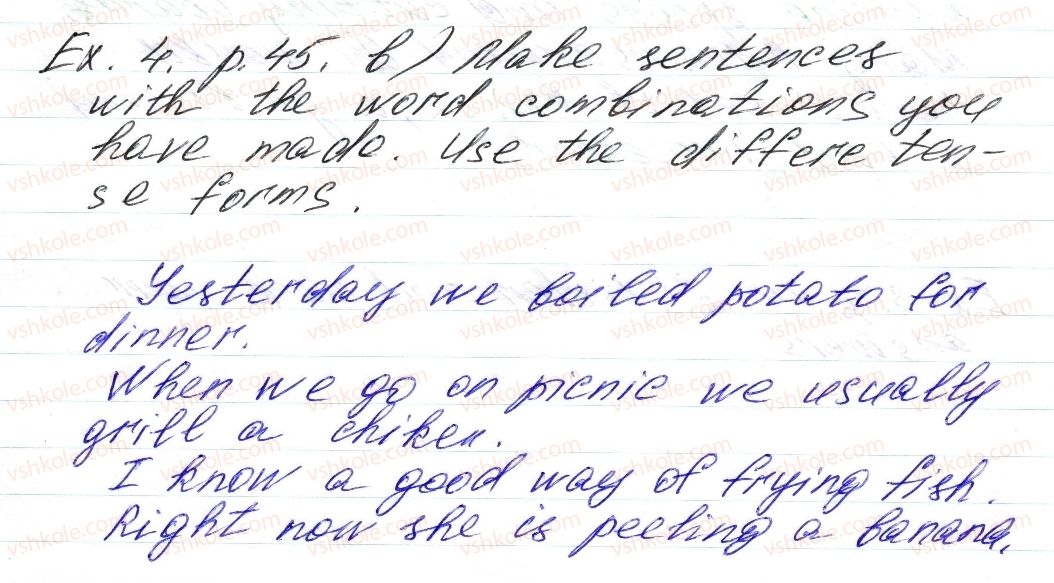 Ex. 4. p. 45. b) Make sentences
with the word combinations you
have made. Use the differe ten-
se forms.
Yesterday we boiled potato for
dinner.
When we go on picnic we usually
grill a chiken.
I know a good way of frying fish.
Right now she is peeling a banana.